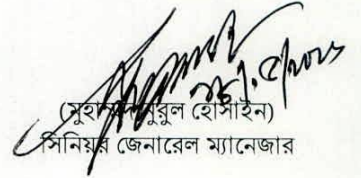 (মুহাম্মদ নুরুল হোসাইন)
সিনিয়র জেনারেল ম্যানেজার